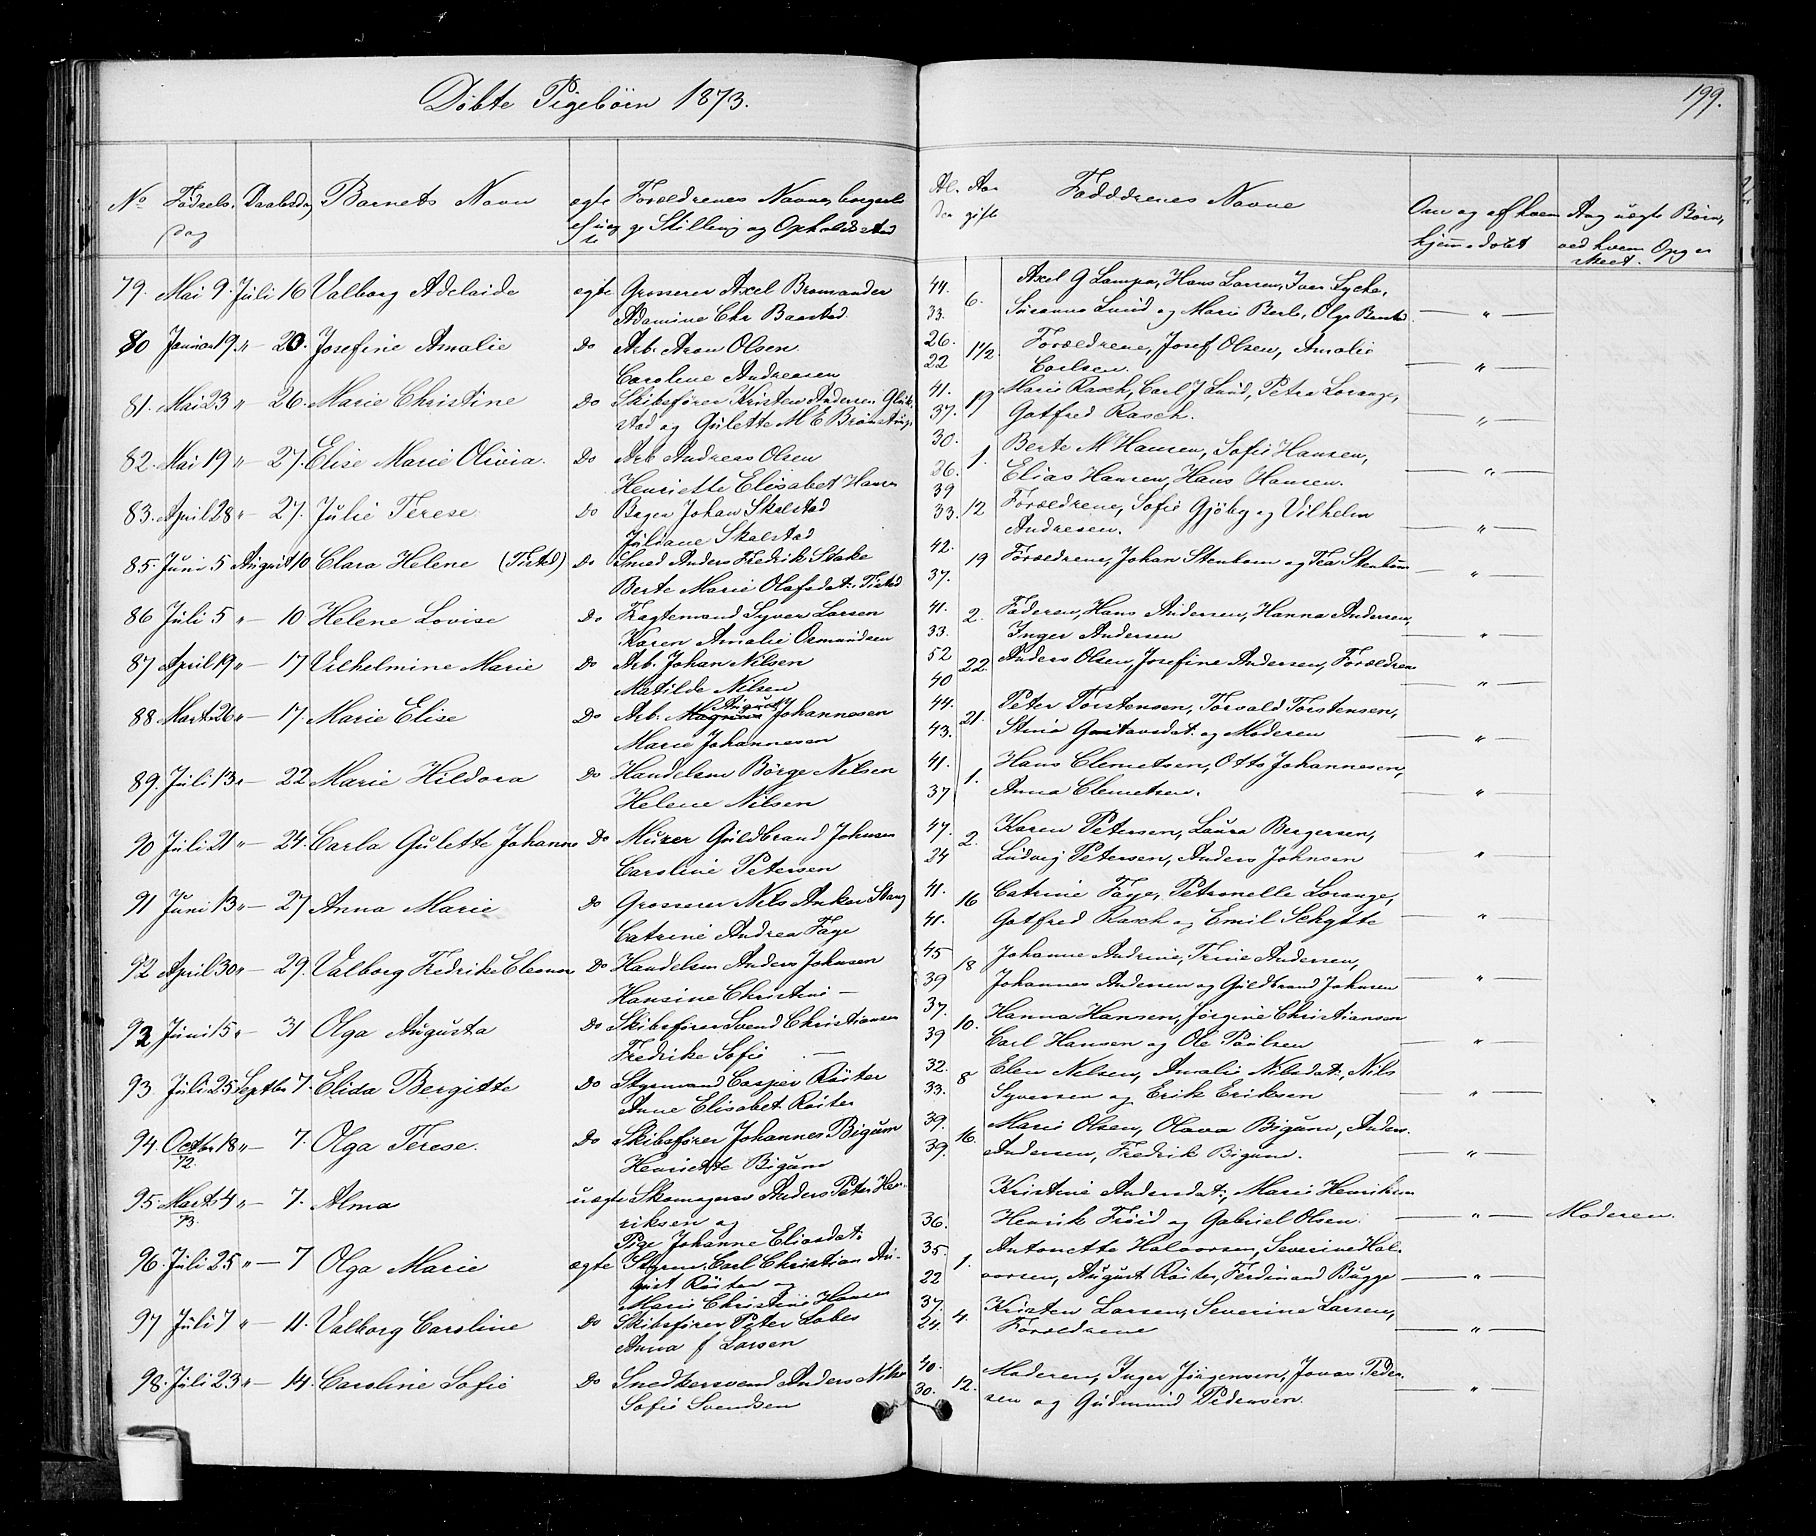 Døbte Pigebörn 1873.
199.
No Fødsels Dag Daabsdag Barnets Navn ægte el uægte Forældrenes Navne, borgerlige Stilling og Opholdssted
Al- der Aar gifte Faddrenes Navne Om og af hvem hjemmedøbt Ang uægte Börn, ved hvem Opg er skeet.
79. Mai 9. Juli 16 Valborg Adelaide ægte Grosserer Axel Bromander 44. 6. Axel G Lampe, Hans Larsen, Iver Lycke,
Adamine Chr Baastad. 33. Susanna Lund og Marie Berls, Olga Baastad — " —
80 Januar 19 " — 20. Josefine Amalie Do Arb. Aron Olsen 26. 1 1/2 Forældrene, Josef Olsen, Amalie
Caroline Andreasen 22 Carlsen. — " —
81. Mai 23 " — 26. Marie Christine Do Skibsfører Kristen Andersen Glük- 41. 19 Marie Rasch, Carl J Lund, Petra Lorange,
stad og Gulette M E 37. Gotfred Rasch. — " —
82. Mai 19 " — 27. Elise Marie Olivia. Do Arb Andreas Olsen 30. 1. Berte M Hansen, Sofie Hansen,
Henriette Elisabet Hansen 26. Elias Hansen, Hans Hansen. — " —
83. April 28 " — 27. Julie Terese Do Bager Johan Skalstad 39 12 Forældrene, Sofie Gjöby og Vilhelm
Juliane Skalstad 33. Andresen. — " —
85. Juni 5 August 10 Clara Helene (Tistd) Do Smed Anders Fredrik Stake 42. 19 Forældrene, Johan Stenkorn og Tea Stenkorn
Berte Marie Olafsdat., Tistd 37. — " —
86 Juli 5 " — 10 Helene Lovise Do Fragtemand Syver Larsen 41. 2. Faderen, Hans Andersen, Hanna Andersen,
Karen Amalie Osmundsen 33. Inger Andersen "
87 April 19 " — 17 Vilhelmine Marie Do Arb. Johan Nilsen 52 22. Anders Olsen, Josefine Andersen, Forældrene
Matilde Nilsen 40 — " —
88 Marts 26 " — 17. Marie Elise Do Arb. August Johannesen 44. 21. Peter Torstensen, Torvald Torstensen,
Marie Johannesen 43. Stina Gustavsdat. og Moderen — " —
89. Juli 13 " — 22 Marie Hildora Do Handelsm Börge Nilsen 41. 1. Hans Clemetsen, Otto Johannesen,
Helene Nilsen 37 Anna Clemetsen. — " —
90 Juli 21 " — 24. Carla Gulette Johanne Do Murer Guldbrand Johnsen 47. 2. Karen Petersen, Laura Bergersen,
Caroline Petersen 24 Ludvig Petersen, Anders Johnsen "
91 Juni 13 " — 27 Anna Marie Do Grosserer Nils Anker Stang 41. 16 Catrine Faye, Petronelle Lorange,
Catrine Andrea Faye 41. Gotfred Rasch og Emil Schytte — " —
92 April 30 " — 29. Valborg Fredrike Eleonora Do Handelsm Anders Johnsen 45 18 Johanne Andrine, Trine Andersen,
Hansine Christine — 39 Johannes Andersen og Guldbrand Johnsen — " —
92 Juni 15 " — 31 Olga Augusta Do Skibsfører Svend Christiansen 37. 10. Hanna Hansen, Jörgine Christiansen
Fredrike Sofie — 39 Carl Hansen og Ole Paulsen — " —
93. Juli 25 Septbr 7. Elida Bergitte Do Styrmand Casper Röiter 32. 8 Elen Nelsen, Amalie Nilsdat., Nils
Anne Elisabet Röiter 33. Syversen og Erik Eriksen — " —
94. Octbr 18 " — 7. Olga Terese. Do Skibsfører Johannes Bigum 39. 16. Marie Olsen, Olava Bigum, Anders
72. Henriette Bigum 39. Andersen, Fredrik Bigum. — " —
95. Marts 4 " — 7. Alma uægte Skomager Anders Peter Hen- Kristine Andersdat., Marie Henriksen
73. riksen og 36. Henrik Fröid og Gabriel Olsen. — " — Moderen.
Pige Johanne Eliasdat.
96. Juli 25 " — 7 Olga Marie ægte Styrm. Carl Christian Au- 35. 1. Antonette Halvorsen, Severine Hal-
gust Röiter og 22 vorsen, August Röiter, Ferdinand Bugge — " —
Marie Christine Hansen
97 Juli 7 " — 11. Valborg Caroline Do Skibsfører Peter Lobes 37. 4. Kristen Larsen, Severine Larsen,
Anna f Larsen 24. Forældrene — " —
98. Juli 23 " — 14. Caroline Sofie Do Snedkersvend Anders 40. 12. Moderen, Inger Jörgensen, Jonas Peder-
Sofie Svendsen 30. sen og Gudmund Pedersen. — " —